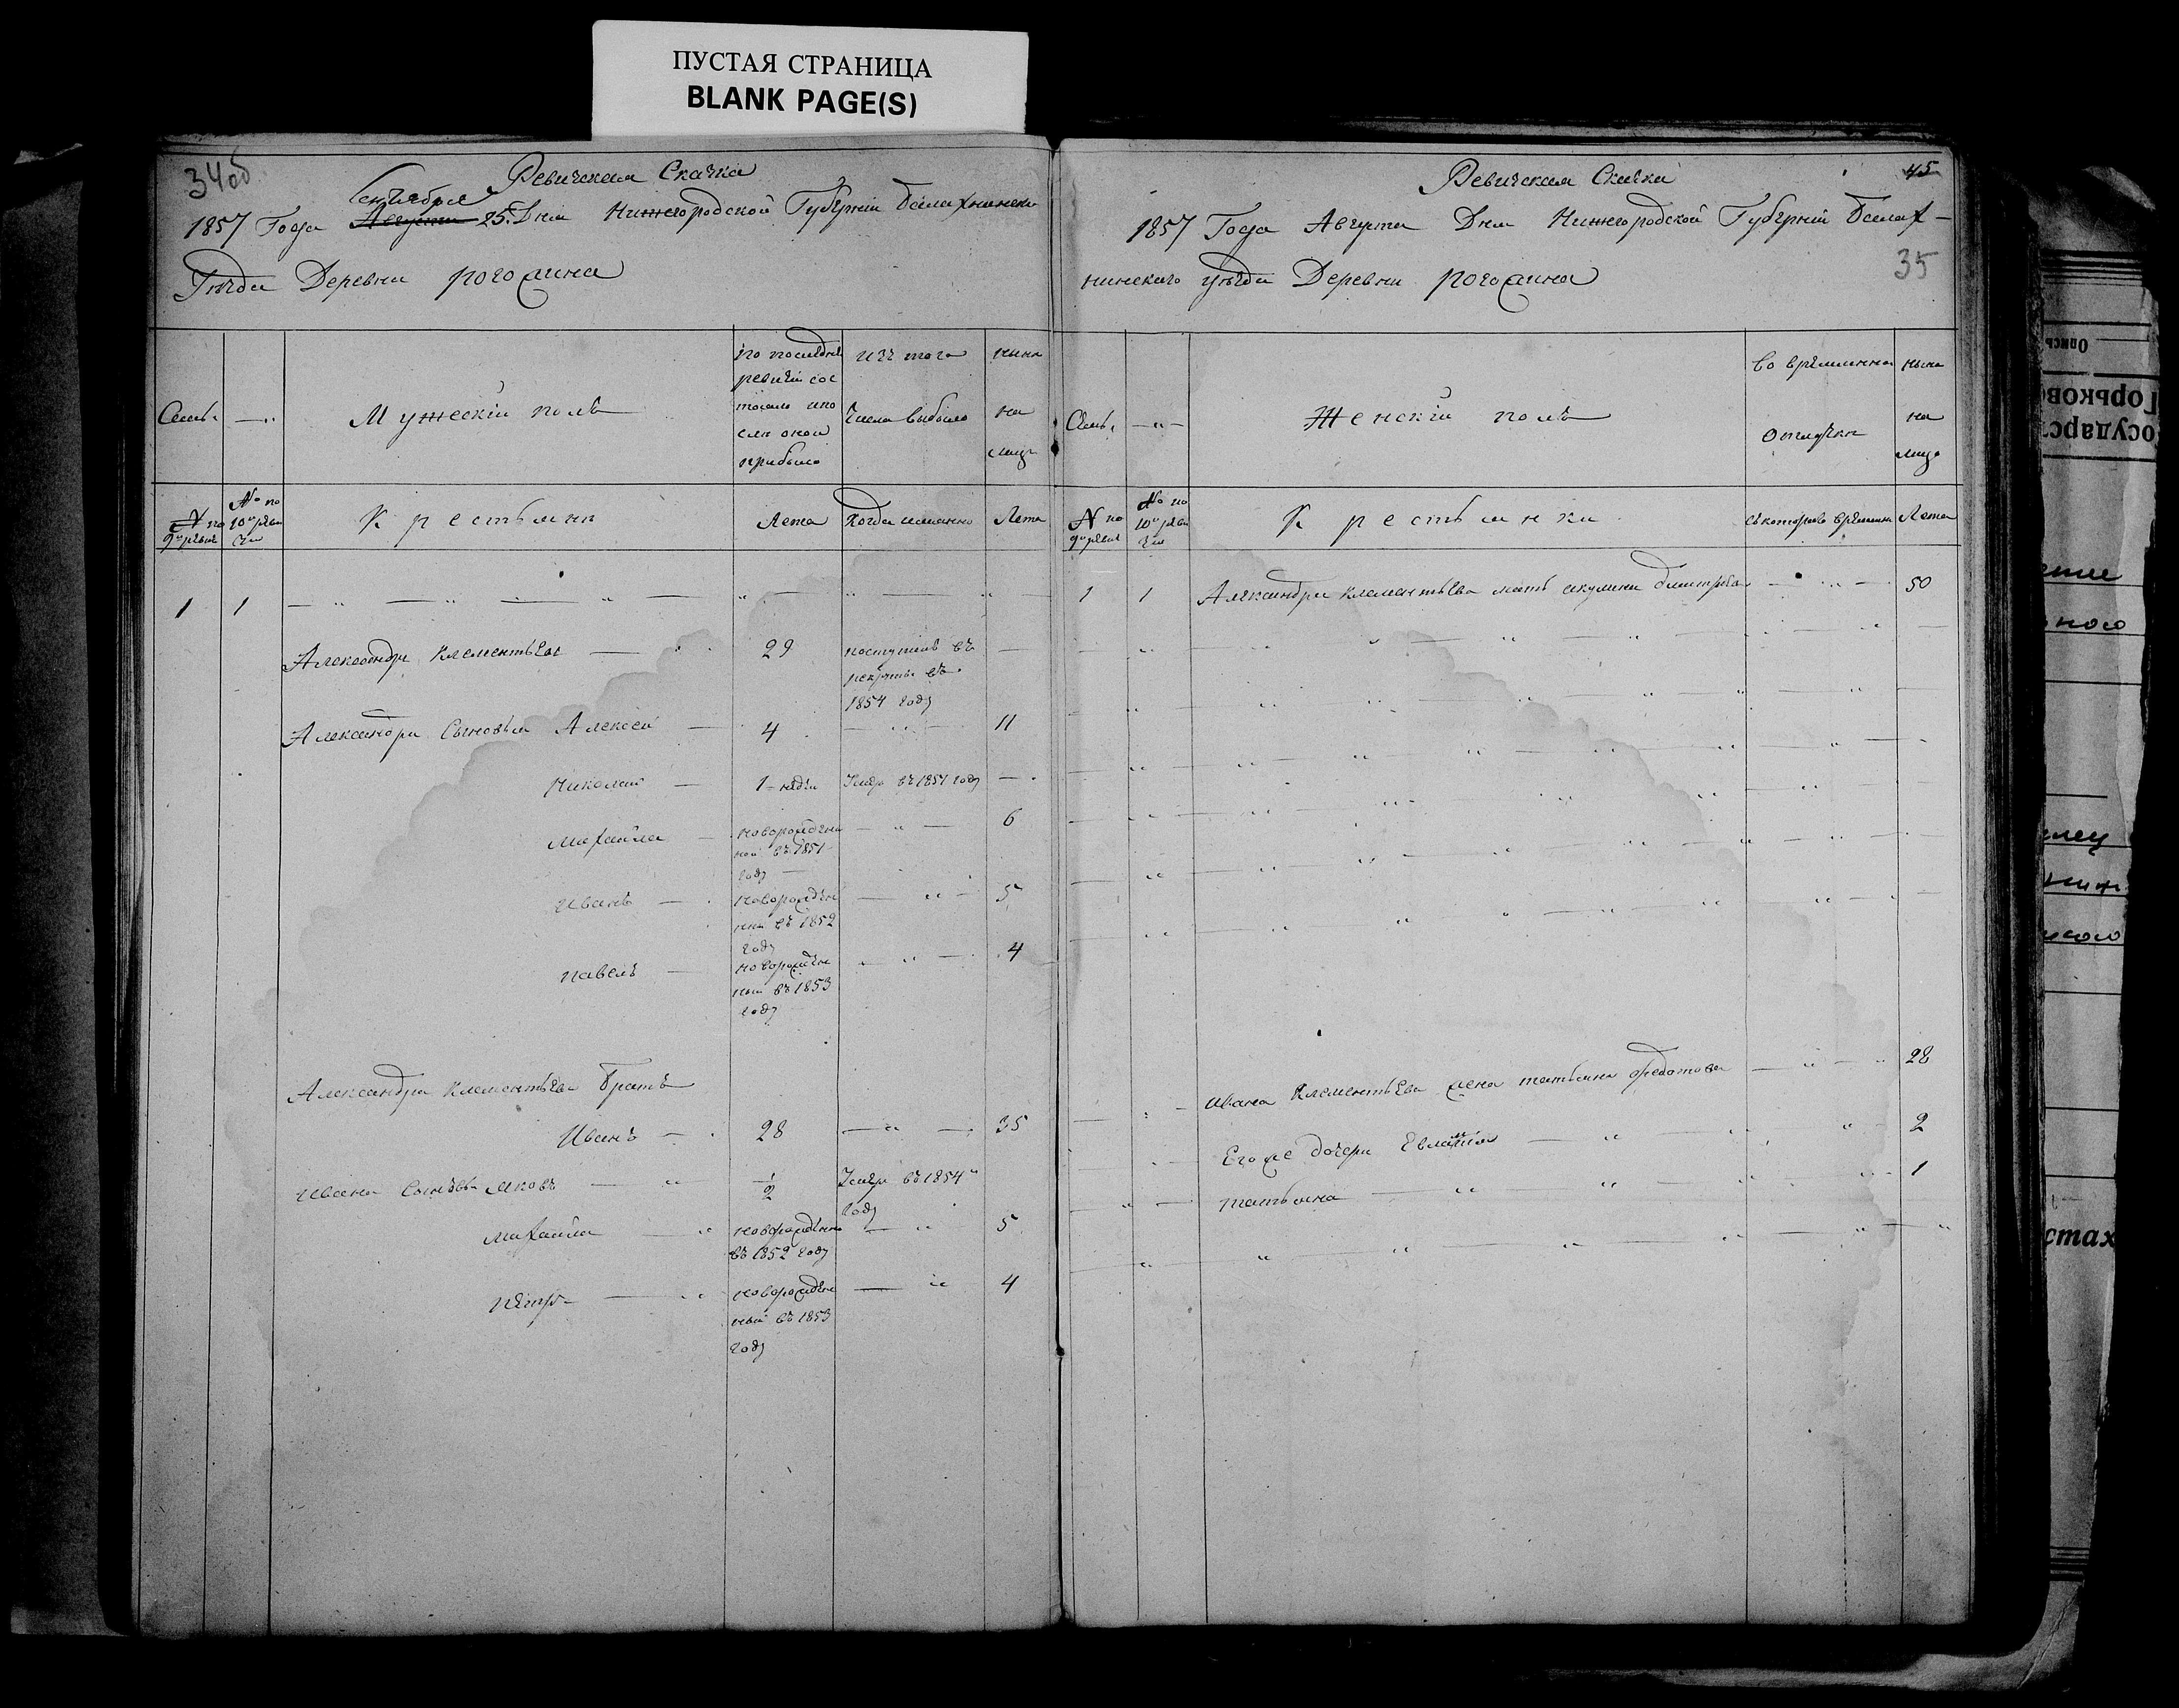 ПУСТАЯ СТРАНИЦА
BLANK PAGE(S)
34об
Ревизская Сказка
Сентября
1857 Года Августа 25 Дня Нижегородской Губерніи Балахнинска
Уѣзда Деревни рогожина
Семьи
Мужескій полъ
по последней
ревизіи сос
тояло и по
слѣ оной
прибыло
изъ того
Числа выбыло
ныне
на
лицо
№ по
9й ревиз
№ по
10й реви
зіи
Крестьяне
Лета
Когда именно
Лета
1 1
Александръ Клементьевъ 29 поступилъ въ
рекруты въ
1854 году
Александра Сыновья Алексей 4 11
Николай 1 - неди Умеръ въ 1851 году
Михайла новорожден 6
ной въ 1851
году
Иванъ новорожден 5
ный въ 1852
году
павелъ новорожден 4
ный въ 1853
году
Александра Клементьева Братъ
Иванъ 28 35
Ивана Сыновья Яковъ 1/2 Умеръ въ 1854
году
Михайла новорожденно 5
въ 1852 году
петръ новорожден 4
ный въ 1853
году
45
Ревизская Сказка
1857 Года Августа Дня Нижегородской Губерніи Балах-
35
нинскаго уѣзда Деревни рогожина
Семьи
Женскій полъ
Во временна
отлучки
ныне
на
лицо
№ по
9й ревиз
№ по
10й реви
зіи
Крестьянки
съ котораго времени
Лета
1 1 Александра Клементьева мать акулина дмитрева 50
Ивана Клементьева жена татьяна федотова 28
Его же дочери Евлампія 2
татьяна 1
Опись
Горьков
осударс
ного
стах